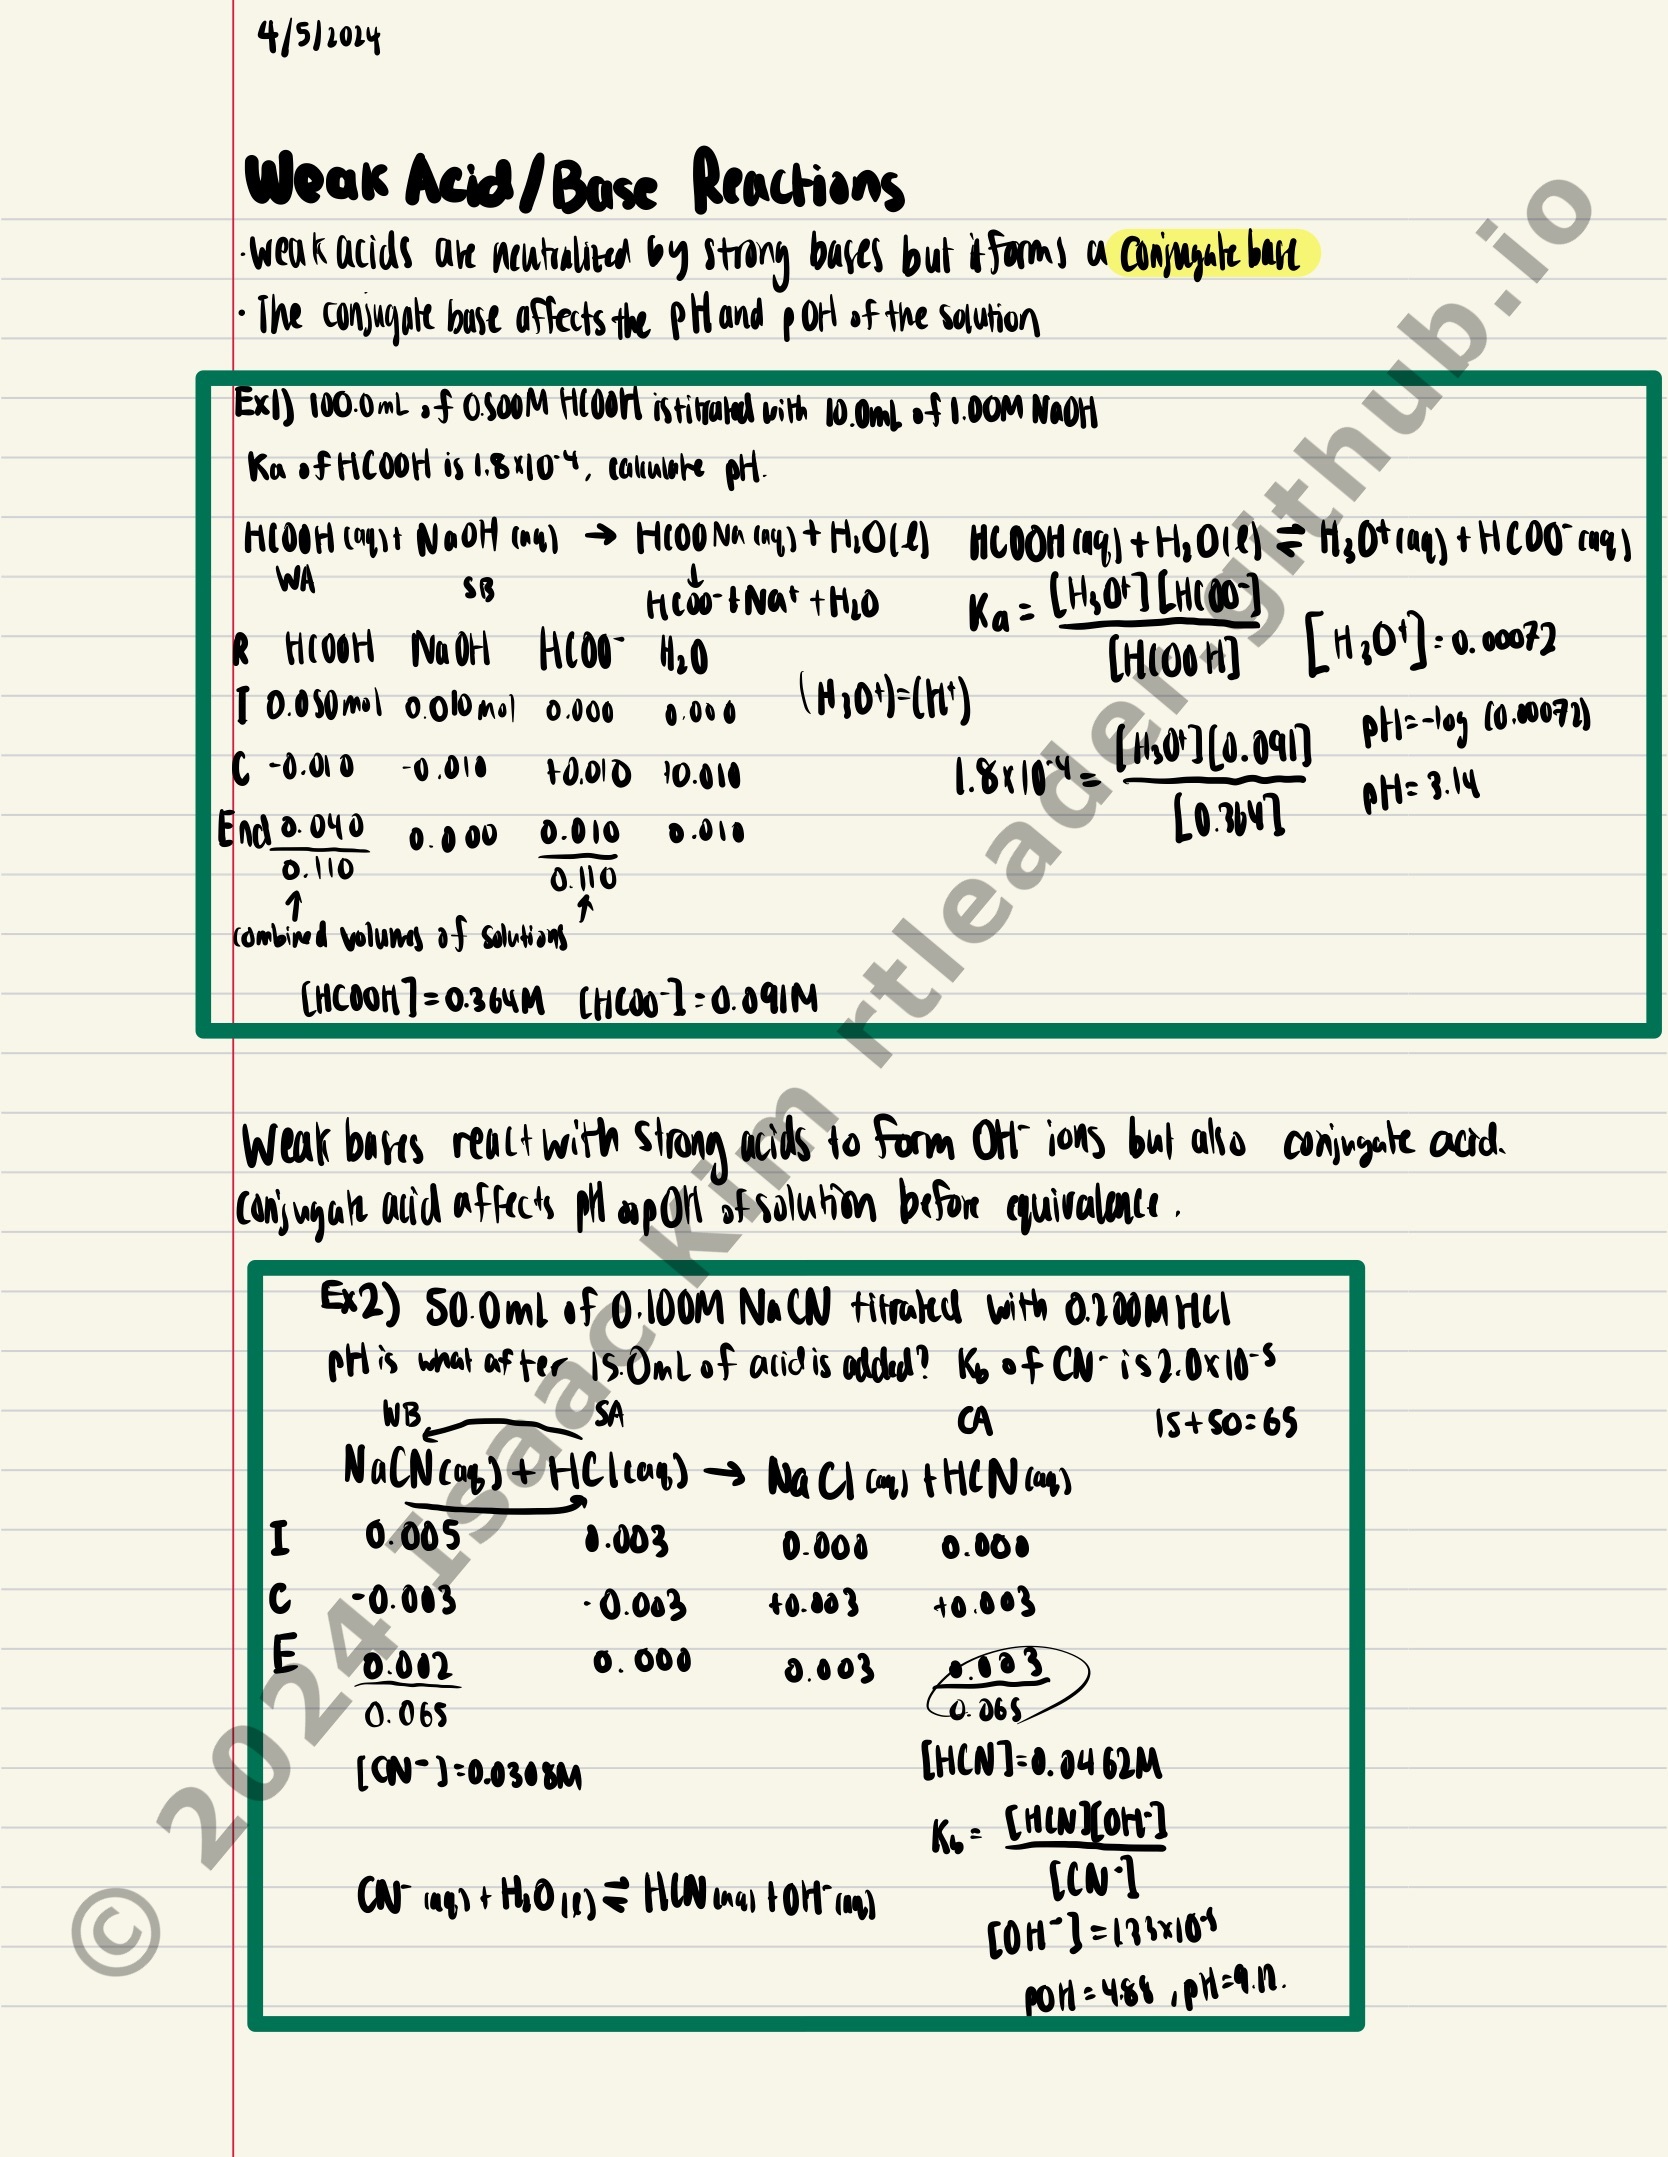 4/5/2024
Weak Acid/Base Reactions
· Weak acids are neutralized by strong bases but it forms a conjugate base
· The conjugate base affects the pH and pOH of the solution
Ex1) 100.0mL of 0.500M HCOOH is titrated with 10.0mL of 1.00M NaOH
Ka of HCOOH is 1.8x10⁻⁴, calculate pH.
HCOOH (aq) + NaOH (aq) → HCOONa (aq) + H₂O(l)
WA SB ↓
HCOO⁻ + Na⁺ + H₂O
R HCOOH NaOH HCOO⁻ H₂O
I 0.050mol 0.010mol 0.000 0.000
C -0.010 -0.010 +0.010 +0.010
End 0.040 0.000 0.010 0.010
0.110 0.110
↑ ↑
combined volumes of solutions
[HCOOH] = 0.364M [HCOO⁻] = 0.091M
HCOOH(aq) + H₂O(l) ⇌ H₃O⁺(aq) + HCOO⁻(aq)
Ka = [H₃O⁺][HCOO⁻]
[HCOOH]
(H₃O⁺)=(H⁺)
1.8x10⁻⁴ = [H₃O⁺][0.091]
[0.364]
[H₃O⁺] = 0.00072
pH = -log (0.00072)
pH = 3.14
Weak bases react with strong acids to form OH⁻ ions but also conjugate acid.
Conjugate acid affects pH or pOH of solution before equivalence.
Ex2) 50.0mL of 0.100M NaCN titrated with 0.200M HCl
pH is what after 15.0mL of acid is added? Kb of CN⁻ is 2.0x10⁻⁵
WB SA CA 15+50=65
NaCN(aq) + HCl(aq) → NaCl(aq) + HCN(aq)
I 0.005 0.003 0.000 0.000
C -0.003 -0.003 +0.003 +0.003
E 0.002 0.000 0.003 0.003
0.065 0.065
[CN⁻] = 0.0308M [HCN] = 0.0462M
Kb = [HCN][OH⁻]
[CN⁻]
CN⁻(aq) + H₂O(l) ⇌ HCN(aq) + OH⁻(aq)
[OH⁻] = 1.33x10⁻⁵
pOH = 4.88, pH = 9.12.
© 2024 Isaac Kim rtleader.github.io